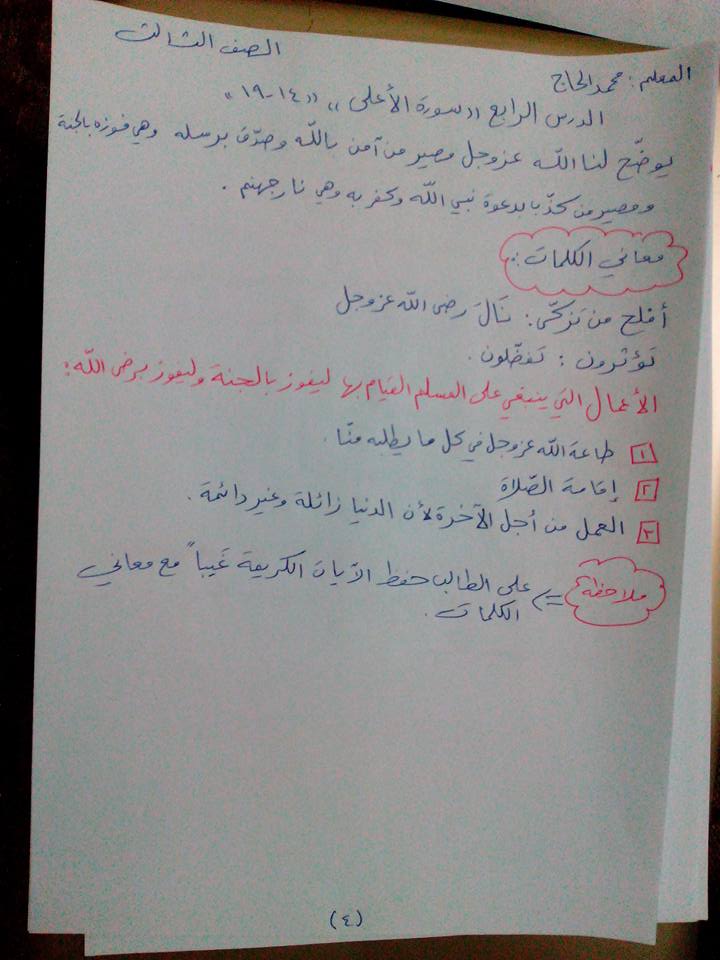 الصف الثالث
المعلم : محمد الحاج
الدرس الرابع "سورة الأعلى" "١٤-١٩"
يوضّح لنا اللّه عزوجل مصير من آمن باللّه وصدّق برسله وهي فوزه بالجنة
ومصير من كذّب بدعوة نبي اللّه وكفر به وهي نار جهنم .
معاني الكلمات :
أفلح من تزكّى : نَالَ رضى اللّه عزوجل
تؤثرون : تفضّلون .
الأعمال التي ينبغي على المسلم القيام بها ليفوز بالجنة وليفوز برضى اللّه :
١ طاعة اللّه عزوجل في كل ما يطلبه منّا .
٢ إقامة الصّلاة
٣ العمل من أجل الآخرة لأن الدنيا زائلة وغير دائمة .
ملاحظة <= على الطالب حفظ الآيات الكريمة غيباً مع معاني
الكلمات .
(٤)